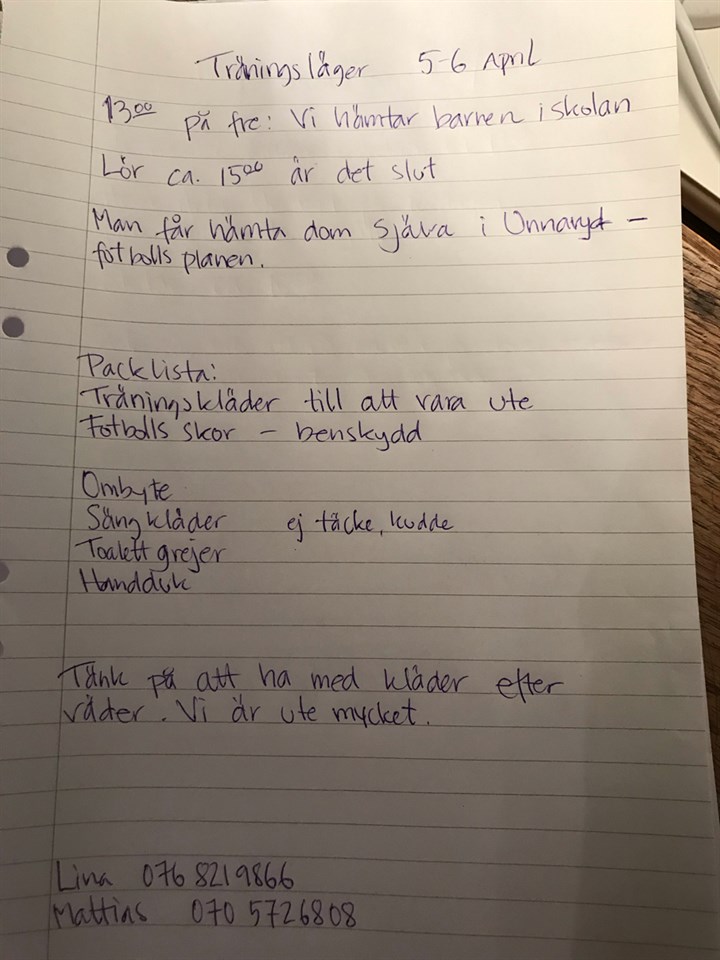 Träningsläger 5-6 April
13⁰⁰ på fre: Vi hämtar barnen i skolan
Lör ca. 15⁰⁰ är det slut
Man får hämta dom själva i Unnaryd -
fotbolls planen.
Packlista:
Träningskläder till att vara ute
Fotbolls skor - benskydd
Ombyte
Sängkläder ej täcke, kudde
Toalett grejer
Handduk
Tänk på att ha med kläder efter
väder. Vi är ute mycket.
Lina 076 8219866
Mattias 070 5726808